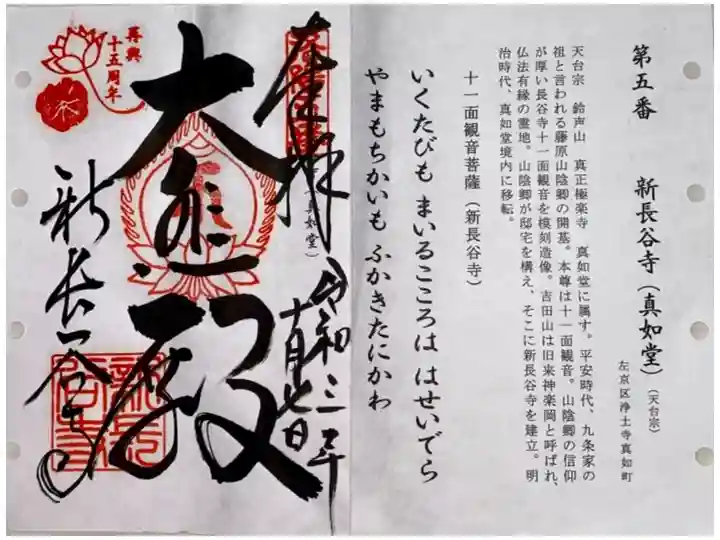 第五番　新長谷寺（真如堂）（天台宗）
左京区浄土寺真如町
天台宗　鈴声山　真正極楽寺　真如堂に属す。平安時代、九条家の
祖と言われる藤原山陰卿の開基。本尊は十一面観音。山陰卿の信仰
が厚い長谷寺十一面観音を模刻造像。吉田山は旧来神楽岡と呼ばれ、
仏法有縁の霊地。山陰卿が邸宅を構え、そこに新長谷寺を建立。明
治時代、真如堂境内に移転。
十一面観音菩薩（新長谷寺）
いくたびも　まいるこころは　はせいでら
やまもちかいも　ふかきたにかわ
奉拝
（真如堂）
令和三年
大悲殿
新長谷寺
再興
十五周年